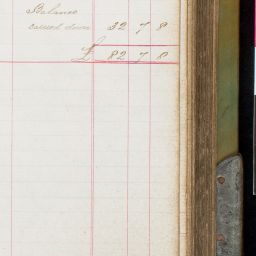 Balance
carried down 32 7 8
£ 82 7 8